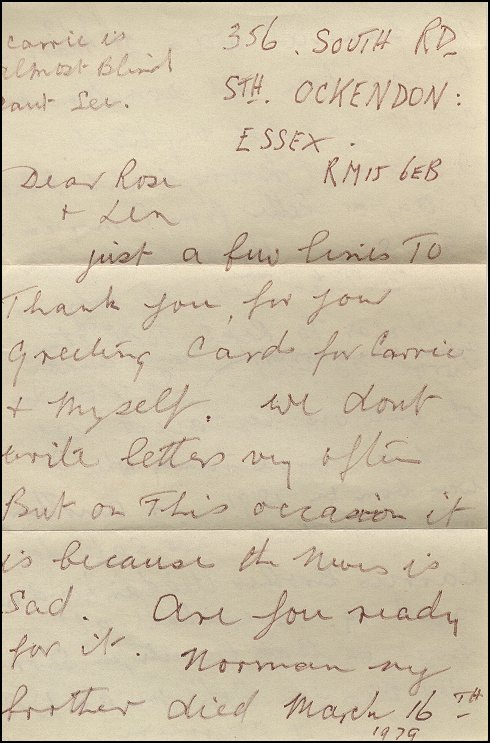 Carrie is
almost Blind
cant See.
356. SOUTH RD
STH. OCKENDON:
ESSEX.
RM15 6EB
Dear Rose
+ Len
just a few lines To
Thank you, for your
Greeting Cards for Carrie
+ Myself. we dont
write letters very often
But on This occasion it
is because the News is
Sad. Are you ready
for it. Norman my
brother died March 16TH
1979